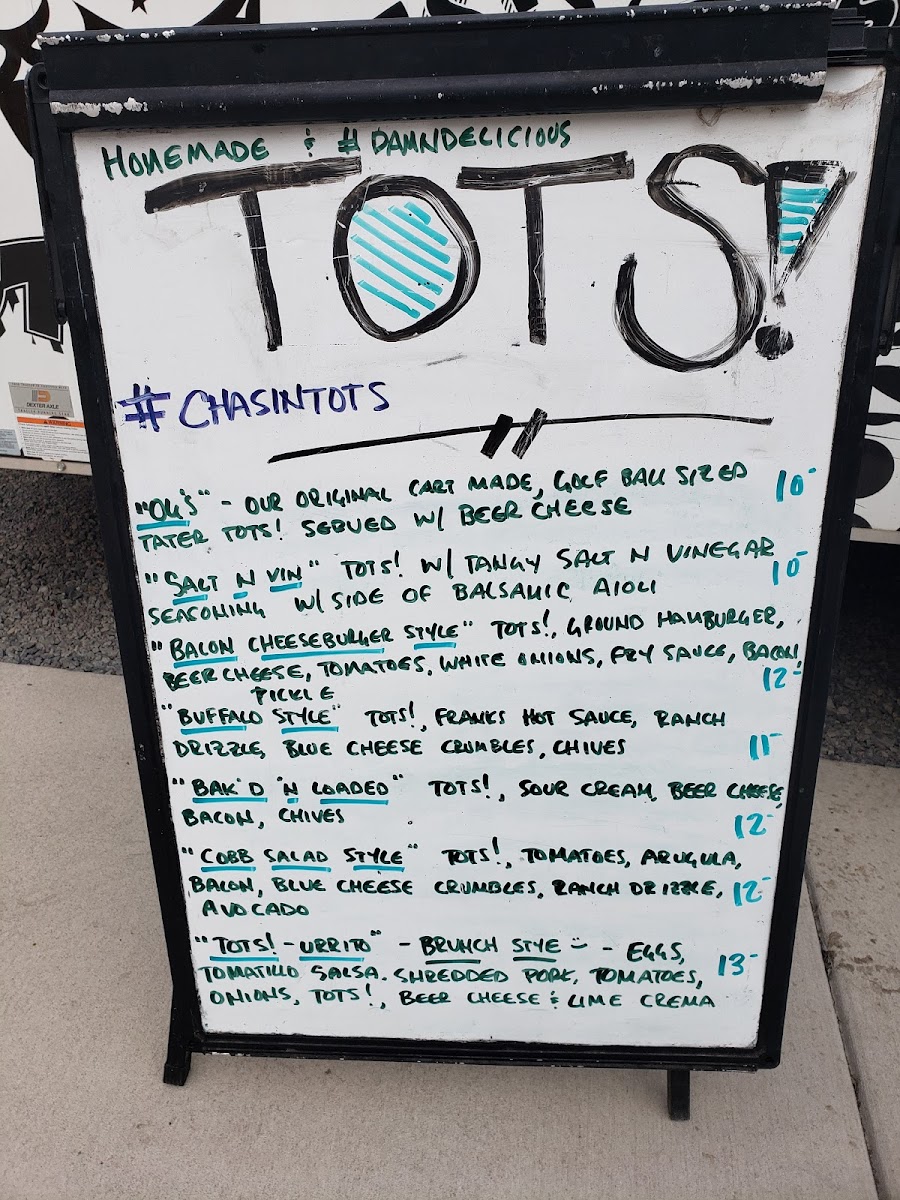 HOMEMADE & #DAMNDELICIOUS
TOTS!
#CHASINTOTS
"OG'S" - OUR ORIGINAL CART MADE, GOLF BALL SIZED 10-
TATER TOTS! SERVED W/ BEER CHEESE
"SALT N VIN" TOTS! W/ TANGY SALT N VINEGAR 10-
SEASONING W/ SIDE OF BALSAMIC AIOLI
"BACON CHEESEBURGER STYLE" TOTS!, GROUND HAMBURGER,
BEER CHEESE, TOMATOES, WHITE ONIONS, FRY SAUCE, BACON, 12-
PICKLE
"BUFFALO STYLE" TOTS!, FRANKS HOT SAUCE, RANCH
DRIZZLE, BLUE CHEESE CRUMBLES, CHIVES 11-
"BAK'D 'N LOADED" TOTS!, SOUR CREAM, BEER CHEESE,
BACON, CHIVES 12-
"COBB SALAD STYLE" TOTS!, TOMATOES, ARUGULA,
BACON, BLUE CHEESE CRUMBLES, RANCH DRIZZLE, 12-
AVOCADO
"TOTS! - URRITO" - BRUNCH STYE - EGGS,
TOMATILLO SALSA. SHREDDED PORK, TOMATOES, 13-
ONIONS, TOTS!, BEER CHEESE & LIME CREMA
DEXTER AXLE
WARNING